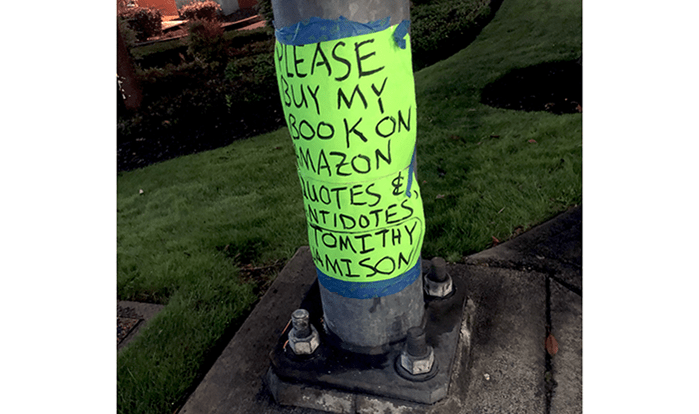 PLEASE
BUY MY
BOOK ON
AMAZON
QUOTES &
ANTIDOTES,
TOMITHY
JAMISON